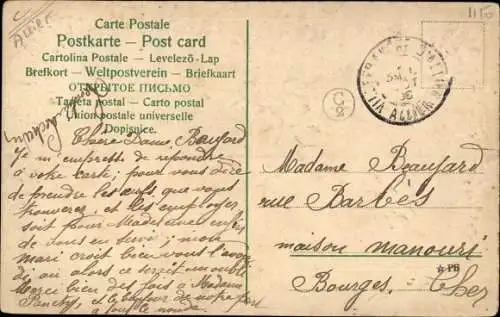 Allier
1110
Carte Postale
Postkarte — Post card
Cartolina Postale — Levelező-Lap
Brefkort — Weltpostverein — Briefkaart
ОТКРЫТОЕ ПИСЬМО
Tarjeta postal — Carto postal
Union postale universelle
Dopisnice.
C
2
ALLIER
Chère Dame Beaufard
Je m'empresse de répondre
à votre carte; pour vous dire
de prendre les œufs que vous
trouverez, et les
soit pour Madelaine enfin
de vous en servir; mon
mari croit bien vous l'avoir
dit au alors ce serait un oubli
Merci bien des fois à Madame
et le bonjour de notre part
à tout le monde.
Madame Beaufard
rue Barbès
maison manouri
Bourges. Cher